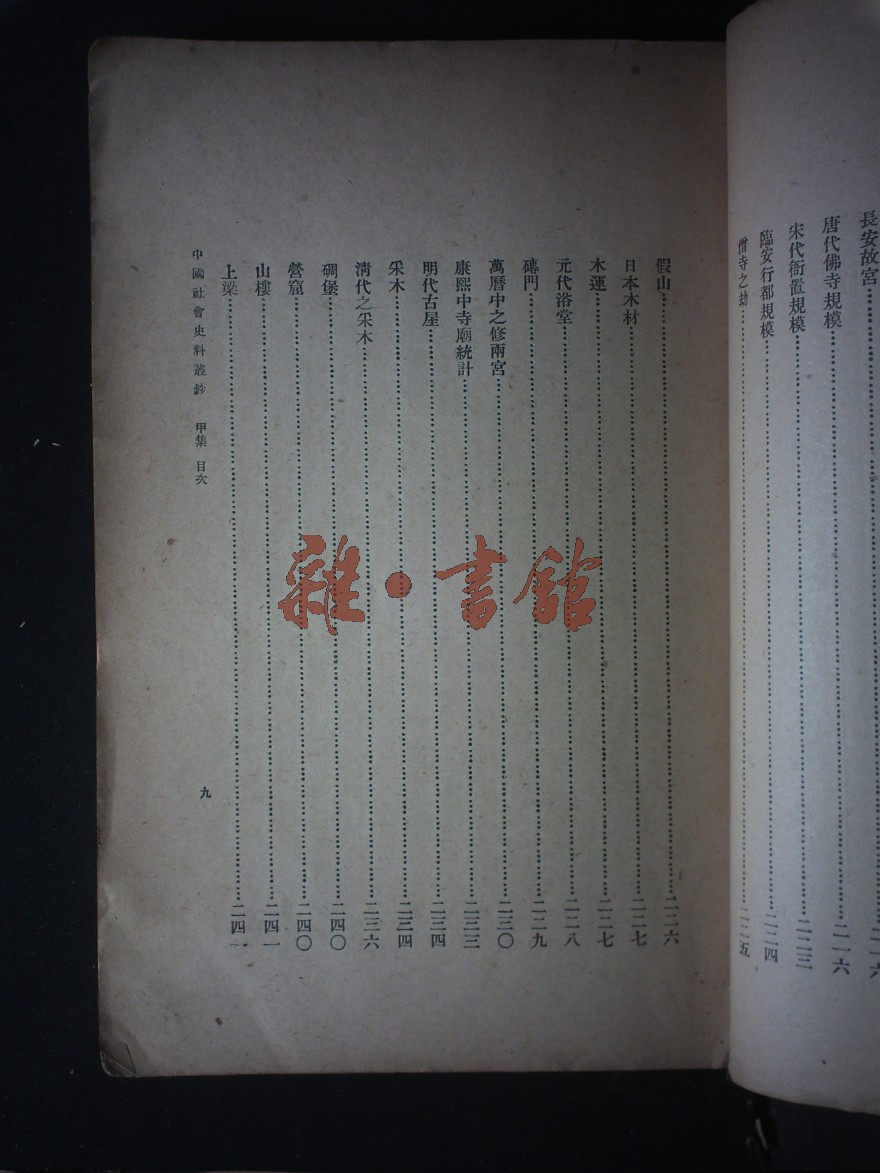 長安故宮……二一六
唐代佛寺規模……二一六
宋代衙置規模……二二三
臨安行都規模……二二四
僧寺之劫……二二五
假山……二二六
日本木材……二二七
木運……二二七
元代浴堂……二二八
磚門……二二九
萬曆中之修兩宮……二三〇
康熙中寺廟統計……二三三
明代古屋……二三四
采木……二三四
清代之采木……二三六
碉堡……二四〇
營窟……二四〇
山樓……二四一
上梁……二四一
中國社會史料叢鈔 甲集 目次
九
雜·書館